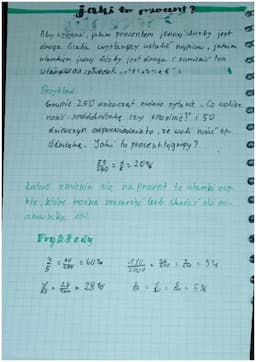 jaki to procent?
Aby wyrazić, jakim procentem jednej liczby jest
druga liczba wystarczy ustalić najpierw, jakim
ułamkiem jednej liczby jest druga i zamienić ten
ułamek na procent.
Przykład
Grupie 250 dziewcząt zadano pytanie "Co wolisz
nosić: spódniczkę czy spodnie?" i 50
dziewczyn odpowiedziało, że woli nosić sp
ódniczkę. Jaki to procent tej grupy?
50/250 = 1/5 = 20%
Łatwo zamienia się na procent te ułamki zwy-
kłe, które można rozszerzyć lub skrócić do mi-
anownika 100.
Przykłady
3/5 = 60/100 = 60%
7/25 = 28/100 = 28%
= 9%
= 5%